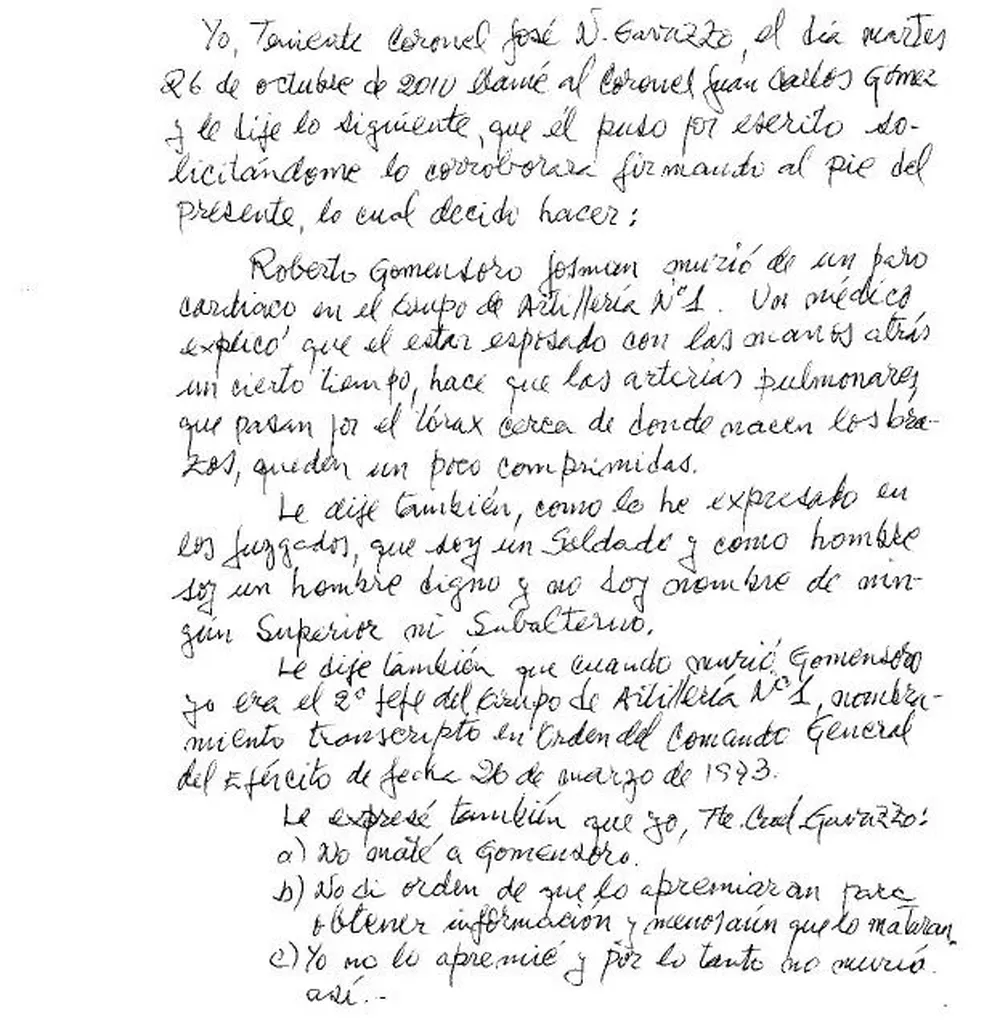 Yo, Teniente Coronel José N. Gavazzo, el día martes
26 de octubre de 2010 llamé al Coronel Juan Carlos Gómez
y le dije lo siguiente, que él puso por escrito so-
licitándome lo corroborara firmando al pie del
presente, lo cual decido hacer:
Roberto Gomensoro Josman murió de un paro
cardiaco en el Grupo de Artillería Nº1. Un médico
explicó que el estar esposado con las manos atrás
un cierto tiempo, hace que las arterias pulmonares,
que pasan por el tórax cerca de donde nacen los bra-
zos, queden un poco comprimidas.
Le dije también, como lo he expresado en
los juzgados, que soy un Soldado y como hombre
soy un hombre digno y no soy nombre de nin-
gún Superior ni Subalterno.
Le dije también que cuando murió Gomensoro
yo era el 2º Jefe del Grupo de Artillería Nº 1, nombra-
miento transcripto en Orden del Comando General
del Ejército de fecha 26 de marzo de 1973.
Le expresé también que yo, Tte. Cnel. Gavazzo:
a) No maté a Gomensoro.
b) No di orden de que lo apremiaran para
obtener información y menos aún que lo mataran.
c) Yo no lo apremié y por lo tanto no murió
así.-